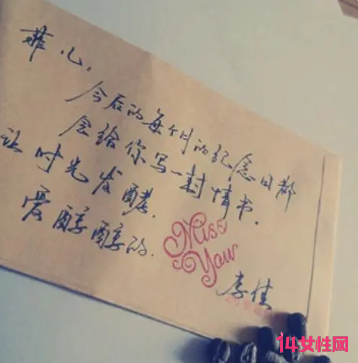 菲儿,
今后的每个月的纪念日都
会给你写一封情书.
让时光发酵.
爱醇醇的.
Miss
You
李倩
14女性网